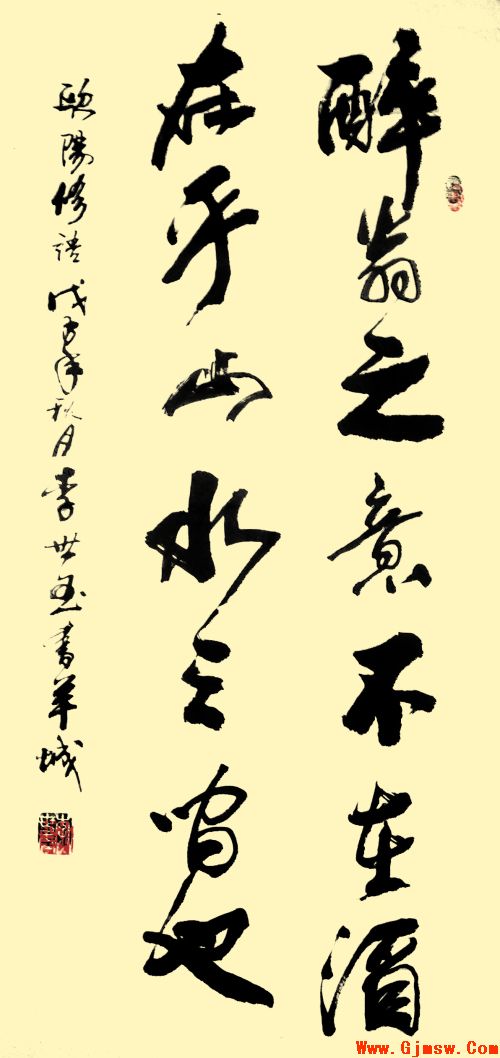 醉翁之意不在酒
在乎山水之間也
歐陽修語戊子年秋月李世書羊城
Www.Gjmsw.Com